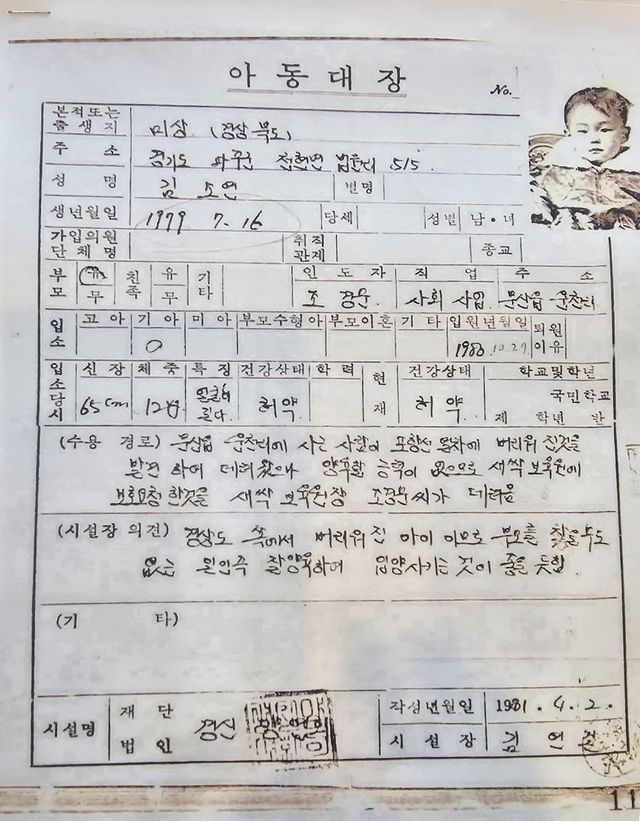 아동대장
No.
본적또는 출생지 미상 (경상북도)
주소 경기도 파주군 천현면 법원리 515.
성명 김 소연 별명
생년월일 1979 7-16 당세 성별 남·녀
가입의원 단체명 취직관계 종교
부모 유 무 친족 유 무 기타 인도자 직업 주소
조경문 사회사업 문산읍
입소 고아 기아 미아 부모수형아 부모이혼 기타 입원년월일 퇴원이유
○ 1980.10.27
입소당시 신장 체중 특징 건강상태 학력 현재 건강상태 학교및학년
65cm 12kg 얼굴이 허약 허약. 국민학교
제 학년 반
(수용 경로) 문산읍 사는 사람이 포항선 열차에 버리워진것을
발견하여 데려왔으나 양육할 능력이 없으므로 새싹보육원에
보호요청한것을 새싹보육원장 조경문씨가 데려옴
(시설장 의견) 경상도 쪽에서 버리워진 아이 이므로 부모를 찾을수도
없는 잘양육하여 입양시키는 것이 좋을 듯함.
(기 타)
시설명 재단법인 경신
작성년월일 1981.4.2.
시설장 김
11